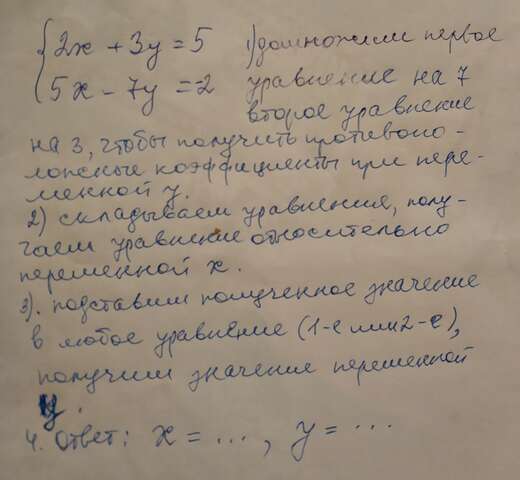 {2x + 3y = 5 1) домножим первое
{5x - 7y = -2 уравнение на 7
второе уравнение
на 3, чтобы получить противопо-
ложные коэффициенты при пере-
менной y.
2) складываем уравнения, полу-
чаем уравнение относительно
переменной x.
3). подставим полученное значение
в любое уравнение (1-е или 2-е),
получим значение переменной
y.
4. Ответ: x = ..., y = ...